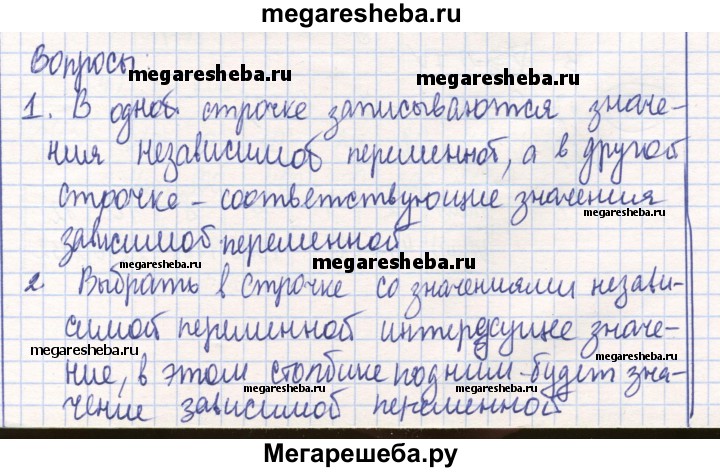 megaresheba.ru
Вопросы:
megaresheba.ru
megaresheba.ru
1. В одной строчке записываются значе-
ния независимой переменной, а в другой
строчке – соответствующие значения
megaresheba.ru
зависимой переменной
megaresheba.ru
megaresheba.ru
2 Выбрать в строчке со значениями незави-
симой переменной интересующее значе-
megaresheba.ru
ние, в этом столбце под ним будет зна-
megaresheba.ru
megaresheba.ru
чение зависимой переменной
Мегарешеба.ру